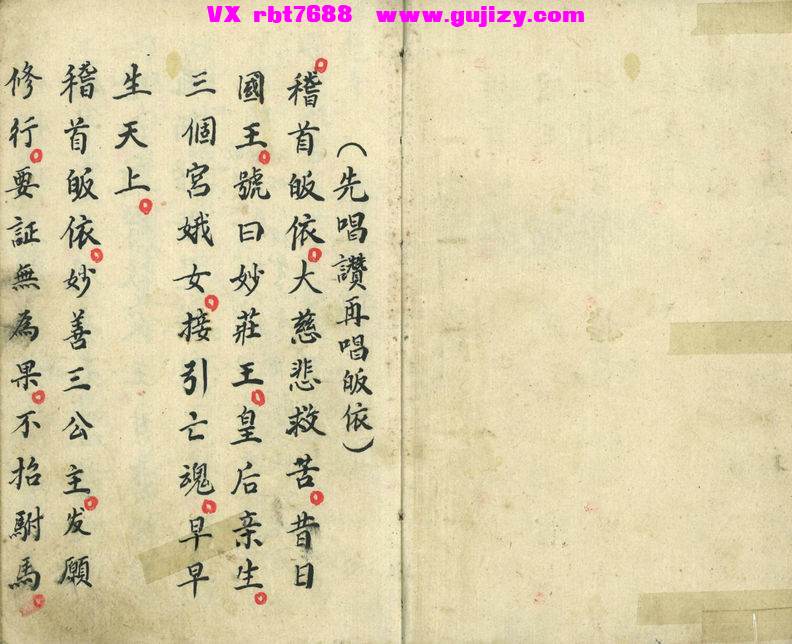 VX rbt7688 www.gujizy.com
(先唱讚再唱皈依)
稽首皈依。大慈悲救苦。昔日
國王。號曰妙莊王。皇后亲生。
三個宮娥女。接引亡魂。早早
生天上。
稽首皈依。妙善三公主。发願
修行。要証無為果。不招駙馬。